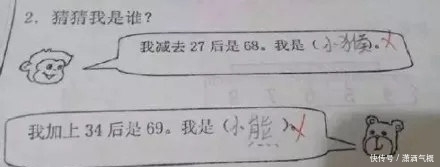 2. 猜猜我是谁？
我减去27后是68。我是（小猴）。
我加上34后是69。我是（小熊）。
快传号/潇洒气概